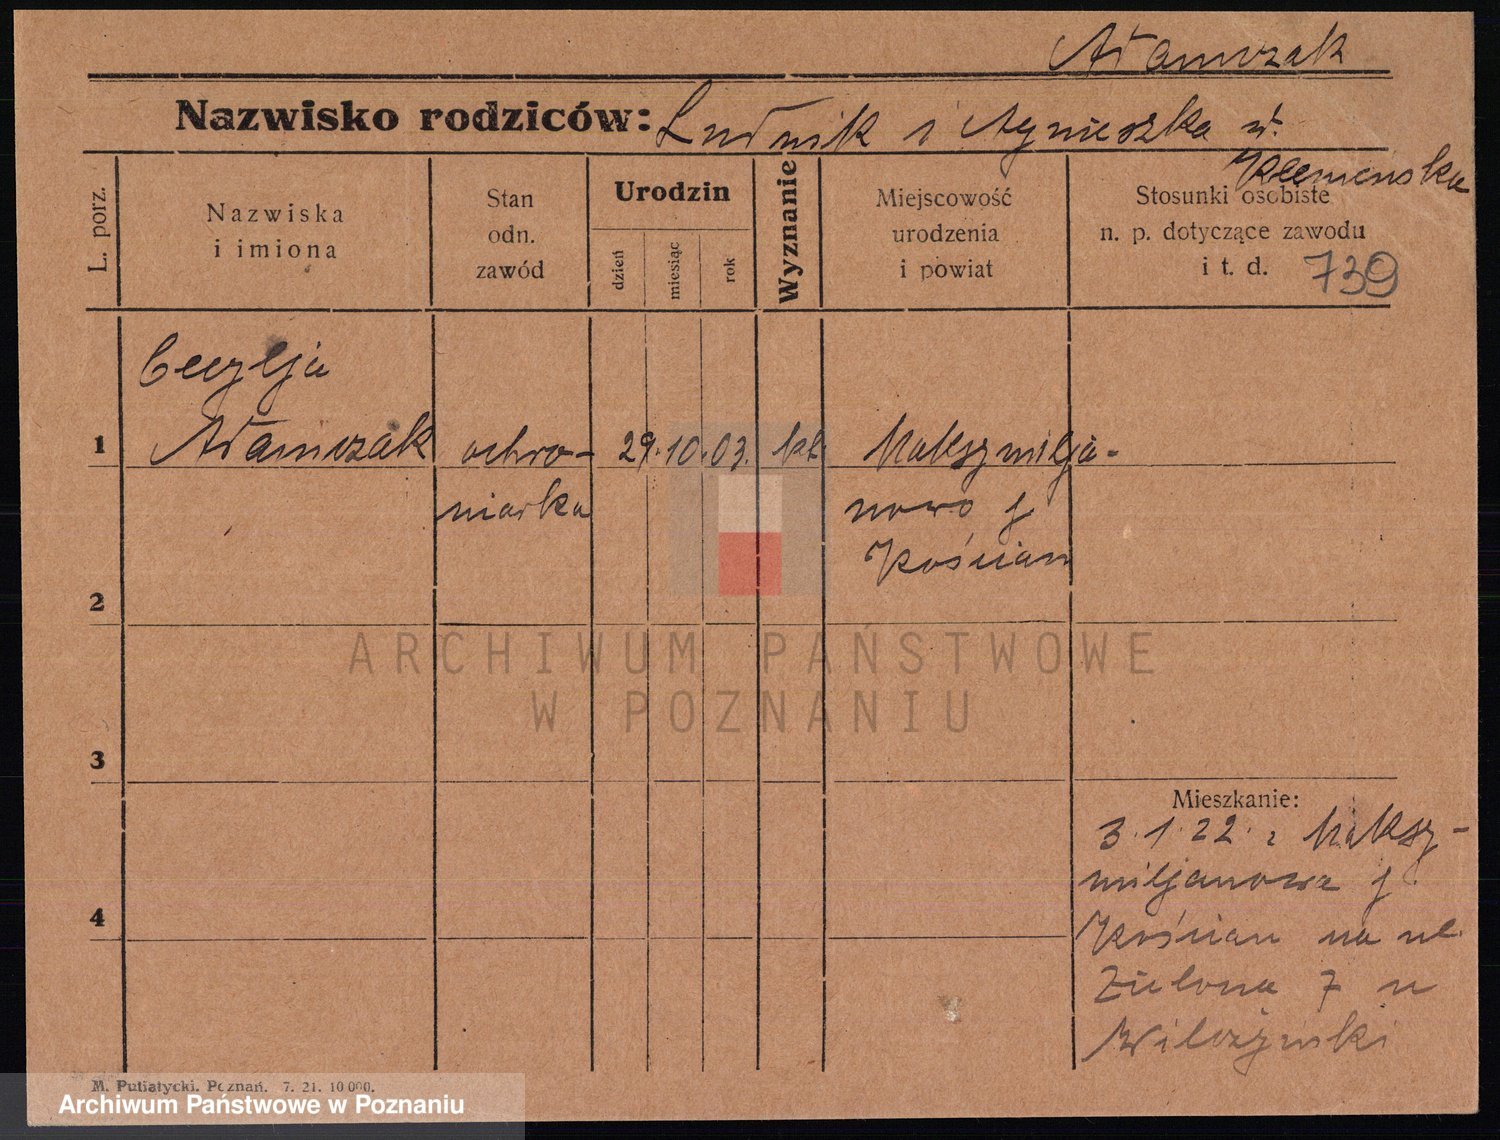 Adamczak
Nazwisko rodziców: Ludwik i Agnieszka u.
Klemenska
L. porz.
Nazwiska
i imiona
Stan
odn.
zawód
Urodzin
dzień
miesiąc
rok
Wyznanie
Miejscowość
urodzenia
i powiat
Stosunki osobiste
n. p. dotyczące zawodu
i t. d. 739
Cecylja
1 Adamczak ochro- 29.10.03. kt. Maksymilja-
niarka nowo p
Kościan
2
ARCHIWUM PAŃSTWOWE
W POZNANIU
3
Mieszkanie:
3.1.22. z Maksy-
miljanowa p
4
Kościan na ul.
Zielona 7 u
Wilczyński
M. Putiatycki. Poznań. 7. 21. 10 000.
Archiwum Państwowe w Poznaniu